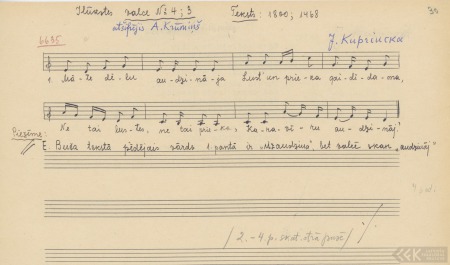 Ilūkstes valce № 4; 3 Teksts: 1800; 1468
atšifrējis A. Krūmiņš
6635 J. Kuprinska
1. Mā-te dē-lu au-dzi-nā-ja Lust' un prie-ka gai-di-da-ma,
Ne tai lus-tes, ne tai prie-ka, Ka-ra-vī-ru au-dzi-nāj.
Piezīme:
Buša tekstā pēdējais vārds 1. pantā ir "uzaudzina", bet valcē skan "audzināj"
/2.-4. p. skat. otrā pusē/